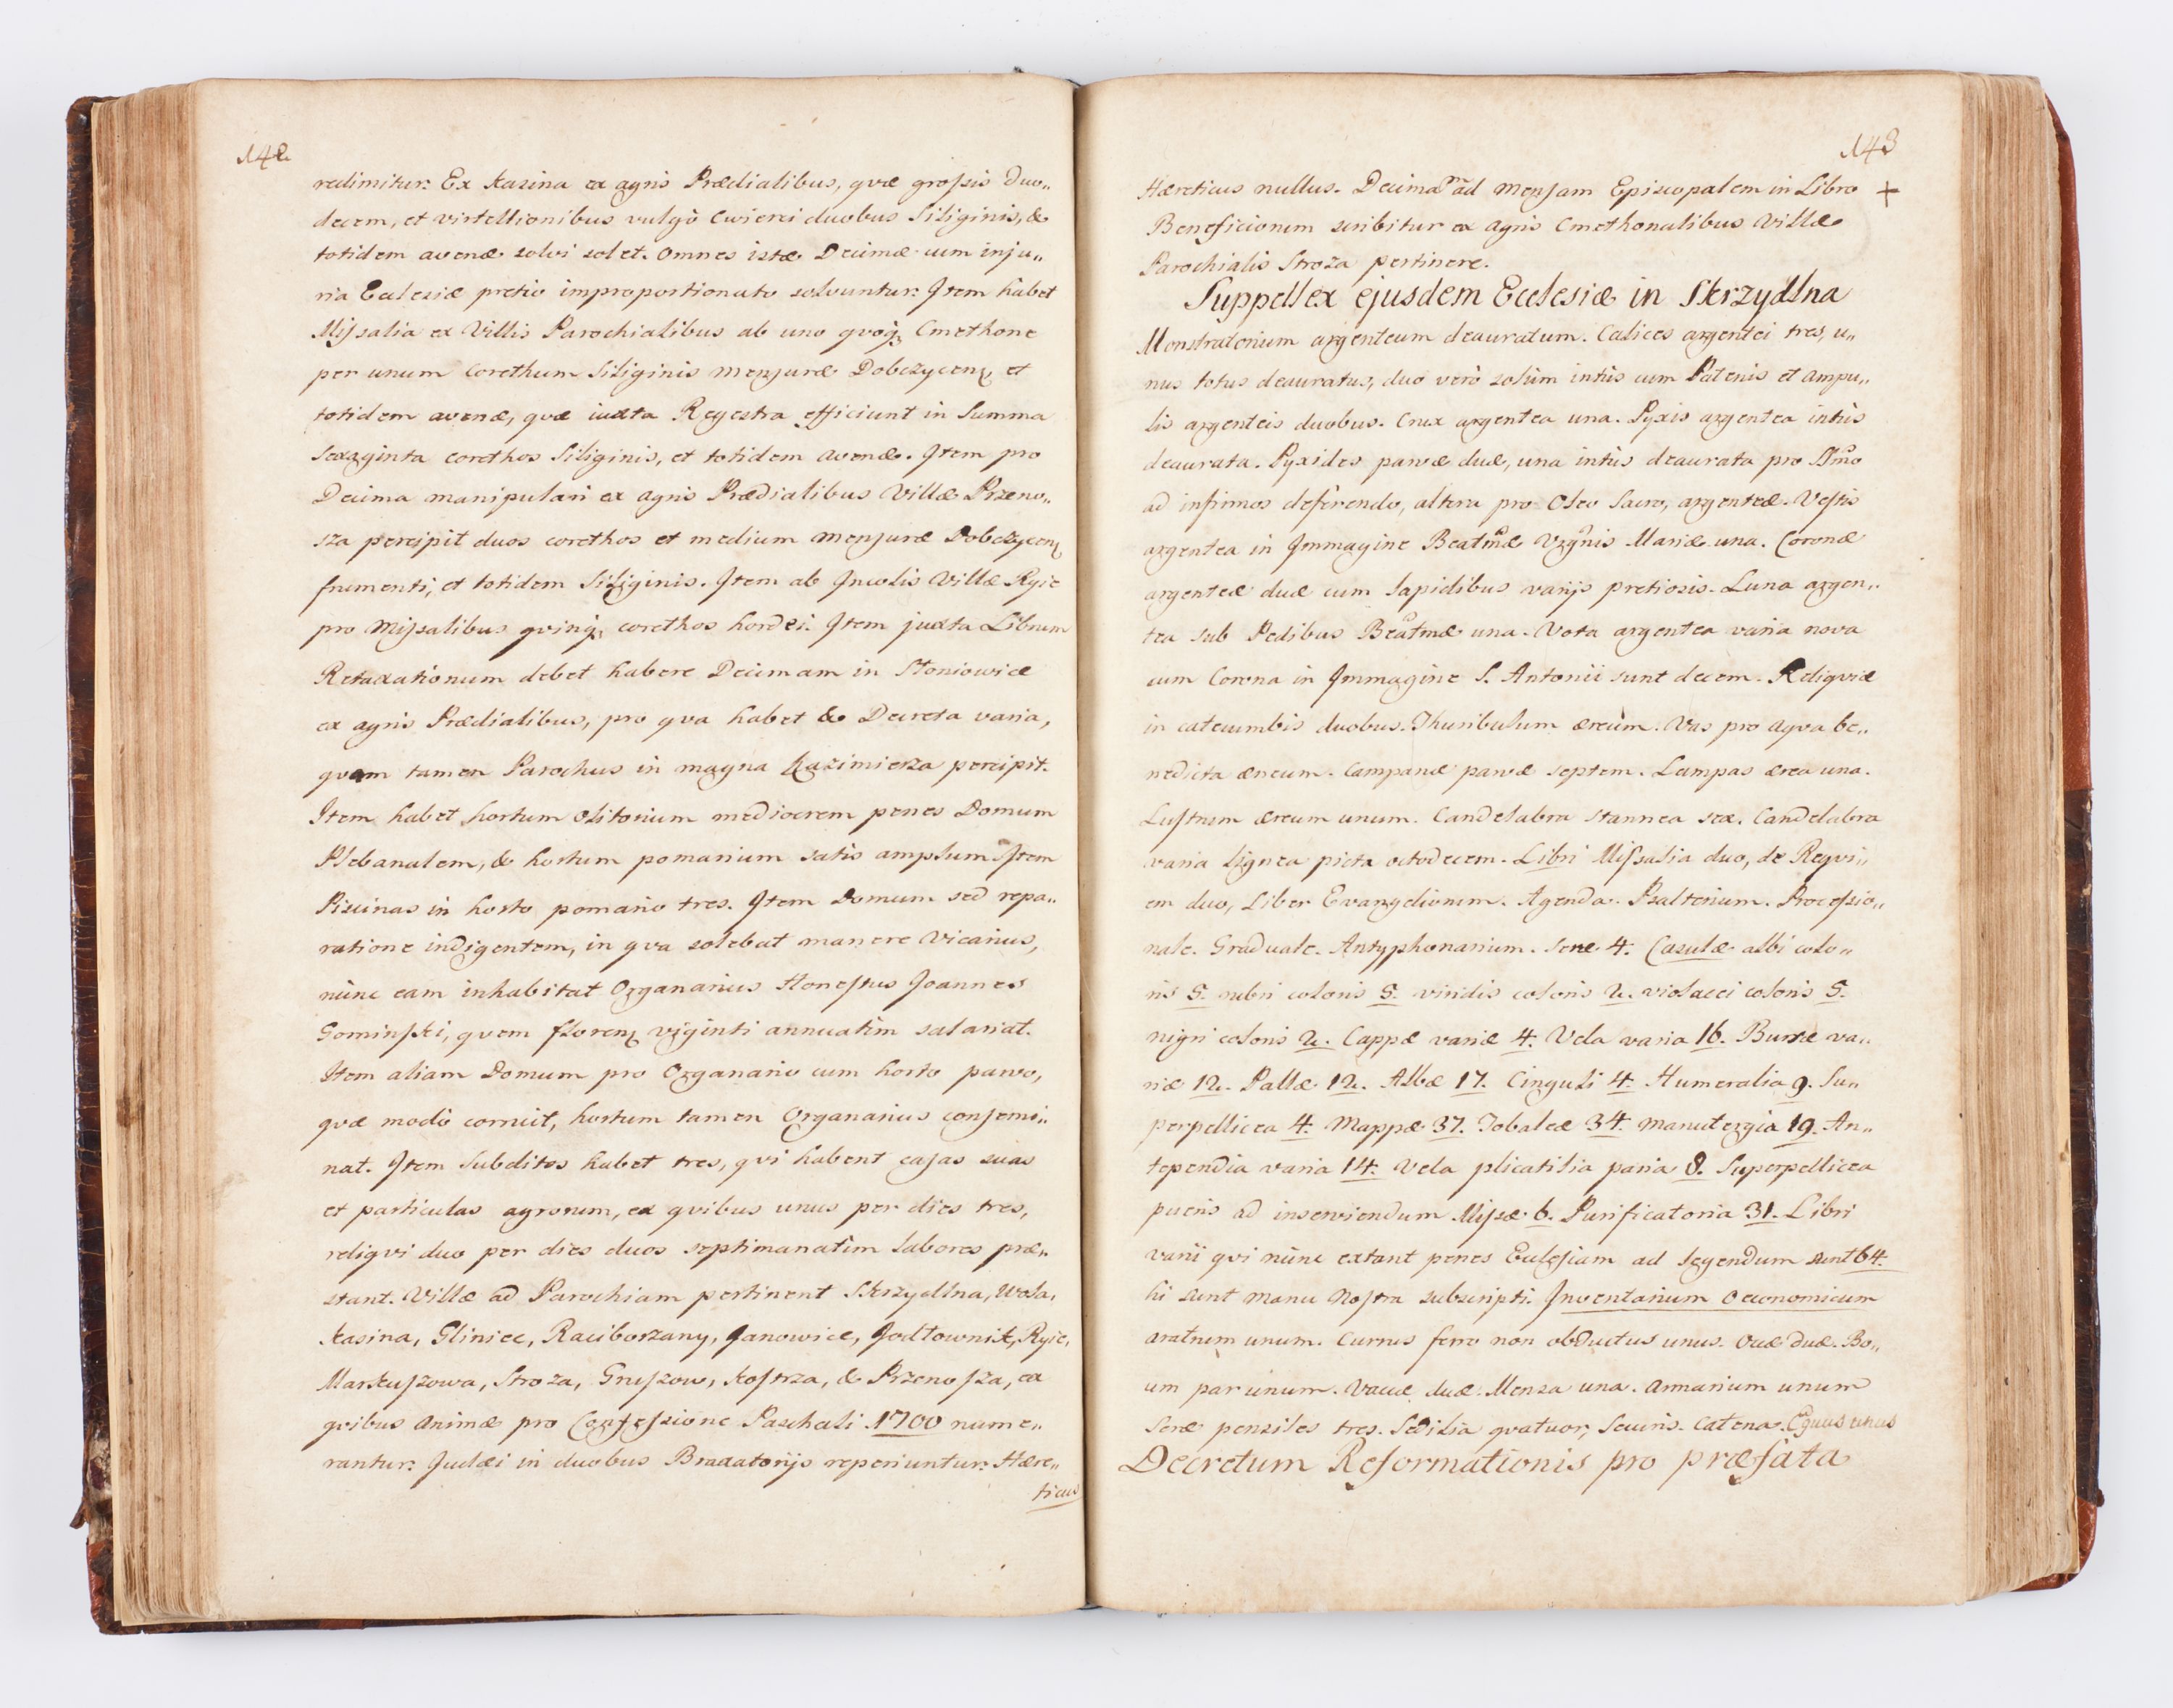 142
redimitur: Ex Kasina ex agris Prædialibus, qvæ grossis duo„
decem, et virtellionibus vulgò Cwierci duobus Siliginis, &
totidem avenæ solvi solet. Omnes istæ Decimæ cum inju„
ria Ecclesiæ pretio improportionato solvuntur: Item habet
Missalia ex Villis Parochialibus ab uno qvoqꝫ Cmethone
per unum Corethum Siliginis mensuræ Dobczycen: et
totidem avenæ, qvæ iuxta Regestra efficiunt in Summa
Sexaginta corethos Siliginis, et totidem avenæ. Item pro
Decima manipulari ex agris Prædialibus Villæ Przeno„
sza percipit duos corethos et medium mensuræ Dobczycen:
frumenti, et totidem Siliginis. Item ab Incolis Villæ Ryie
pro Missalibus qvinqꝫ corethos hordei. Item juxta Librum
Retaxationum debet habere Decimam in Słoniowice
ex agris Prædialibus, pro qva habet & Decreta varia,
qvam tamen Parochus in magna Kazimierza percipit.
Item habet hortum olitorium mediocrem penes Domum
Plebanalem, & hortum pomarium satis amplum Item
Piscinas in horto pomario tres. Item Domum sed repa„
ratione indigentem, in qva solebat manere Vicarius,
nùnc eam inhabitat Organarius Honestus Joannes
Gominski, qvem floren: viginti annuatìm salariat.
Item aliam Domum pro Organario cum horto parvo,
qvæ modò corruit, hortum tamen Organarius consemi„
nat. Item Subditos habet tres, qvi habent casas suas
et particulas agrorum, ex qvibus unus per dies tres,
reliqvi duo per dies duos septimanatìm labores præ„
stant. Villæ ad Parochiam pertinent Skrzydlna, Wola,
Kasina, Glinice, Raciborzany, Janowice, Jodłownik, Ryie,
Markuszowa, Stroza, Gruszow, Kostrza, & Przenosza, ex
qvibus animæ pro Confessione Paschali 1700 nume„
rantur: Judæi in duobus Braxatorijs reperiuntur: Hære„
ticus
143
Hæreticus nullus. Decimam ad mensam Episcopalem in Libro +
Beneficiorum scribitur ex agris Cmethonalibus Villæ
Parochialis Stroza pertinere.
Suppellex ejusdem Ecclesiæ in Skrzydlna
Monstratorium argenteum deauratum. Calices argentei tres, u„
nus totus deauratus, duo verò solùm intùs cum Patenis et ampu„
lis argenteis duobus. Crux argentea una. Pyxis argentea intùs
deaurata. Pyxides parvæ duæ, una intùs deaurata pro SSmo
ad infirmos deferendo, altera pro Oleo Sacro, argenteæ. Vestis
argentea in Immagine Beatmæ Vrgnis Mariæ una. Coronæ
argenteæ duæ cum lapidibus varijs pretiosis. Luna argen„
tea sub Pedibus Beatmæ una. Vota argentea varia nova
cum Corona in Immagine S. Antonii sunt decem. Reliqviæ
in catecumbis duobus. Thuribulum æreùm. Vas pro aqva be„
nedicta æneum. Campanæ parvæ septem. Lampas ærea una.
Lustrum æreum unum. Candelabra stannea sex. Candelabra
varia lignea picta octodecem. Libri Missalia duo, de Reqvi„
em duo, Liber Evangeliorum. Agenda. Psalterium. Processio„
nale. Graduale. Antyphonarium. Seræ 4. Casulæ albi colo„
ris 5. rubri coloris 5. viridis coloris 2. violacei coloris 5.
nigri coloris 2. Cappæ variæ 4. Vela varia 16. Bursæ va„
riæ 12. Pallæ 12. Albæ 17. Cinguli 4. Humeralia 9. Su„
perpellicea 4. Mappæ 37. Tobaleæ 34. Manutergia 19. An„
tependia varia 14. Vela plicatilia paria 8. Superpellicea
pueris ad inserviendum Missæ 6. Purificatoria 31. Libri
varii qvi nùnc extant penes Ecclesiam ad legendum sunt 64.
hi sunt manu Nostra subscripti. Inventarium Oeconomicum
aratrum unum. Currus ferro non obductus unus. Oves duæ. Bo„
um par unum. Vaccæ duæ. Mensa una. Armarium unum
Seræ pensiles tres. Sedilia qvatuor, Securis. Catena. Equus unus
Decretum Reformationis pro præfata